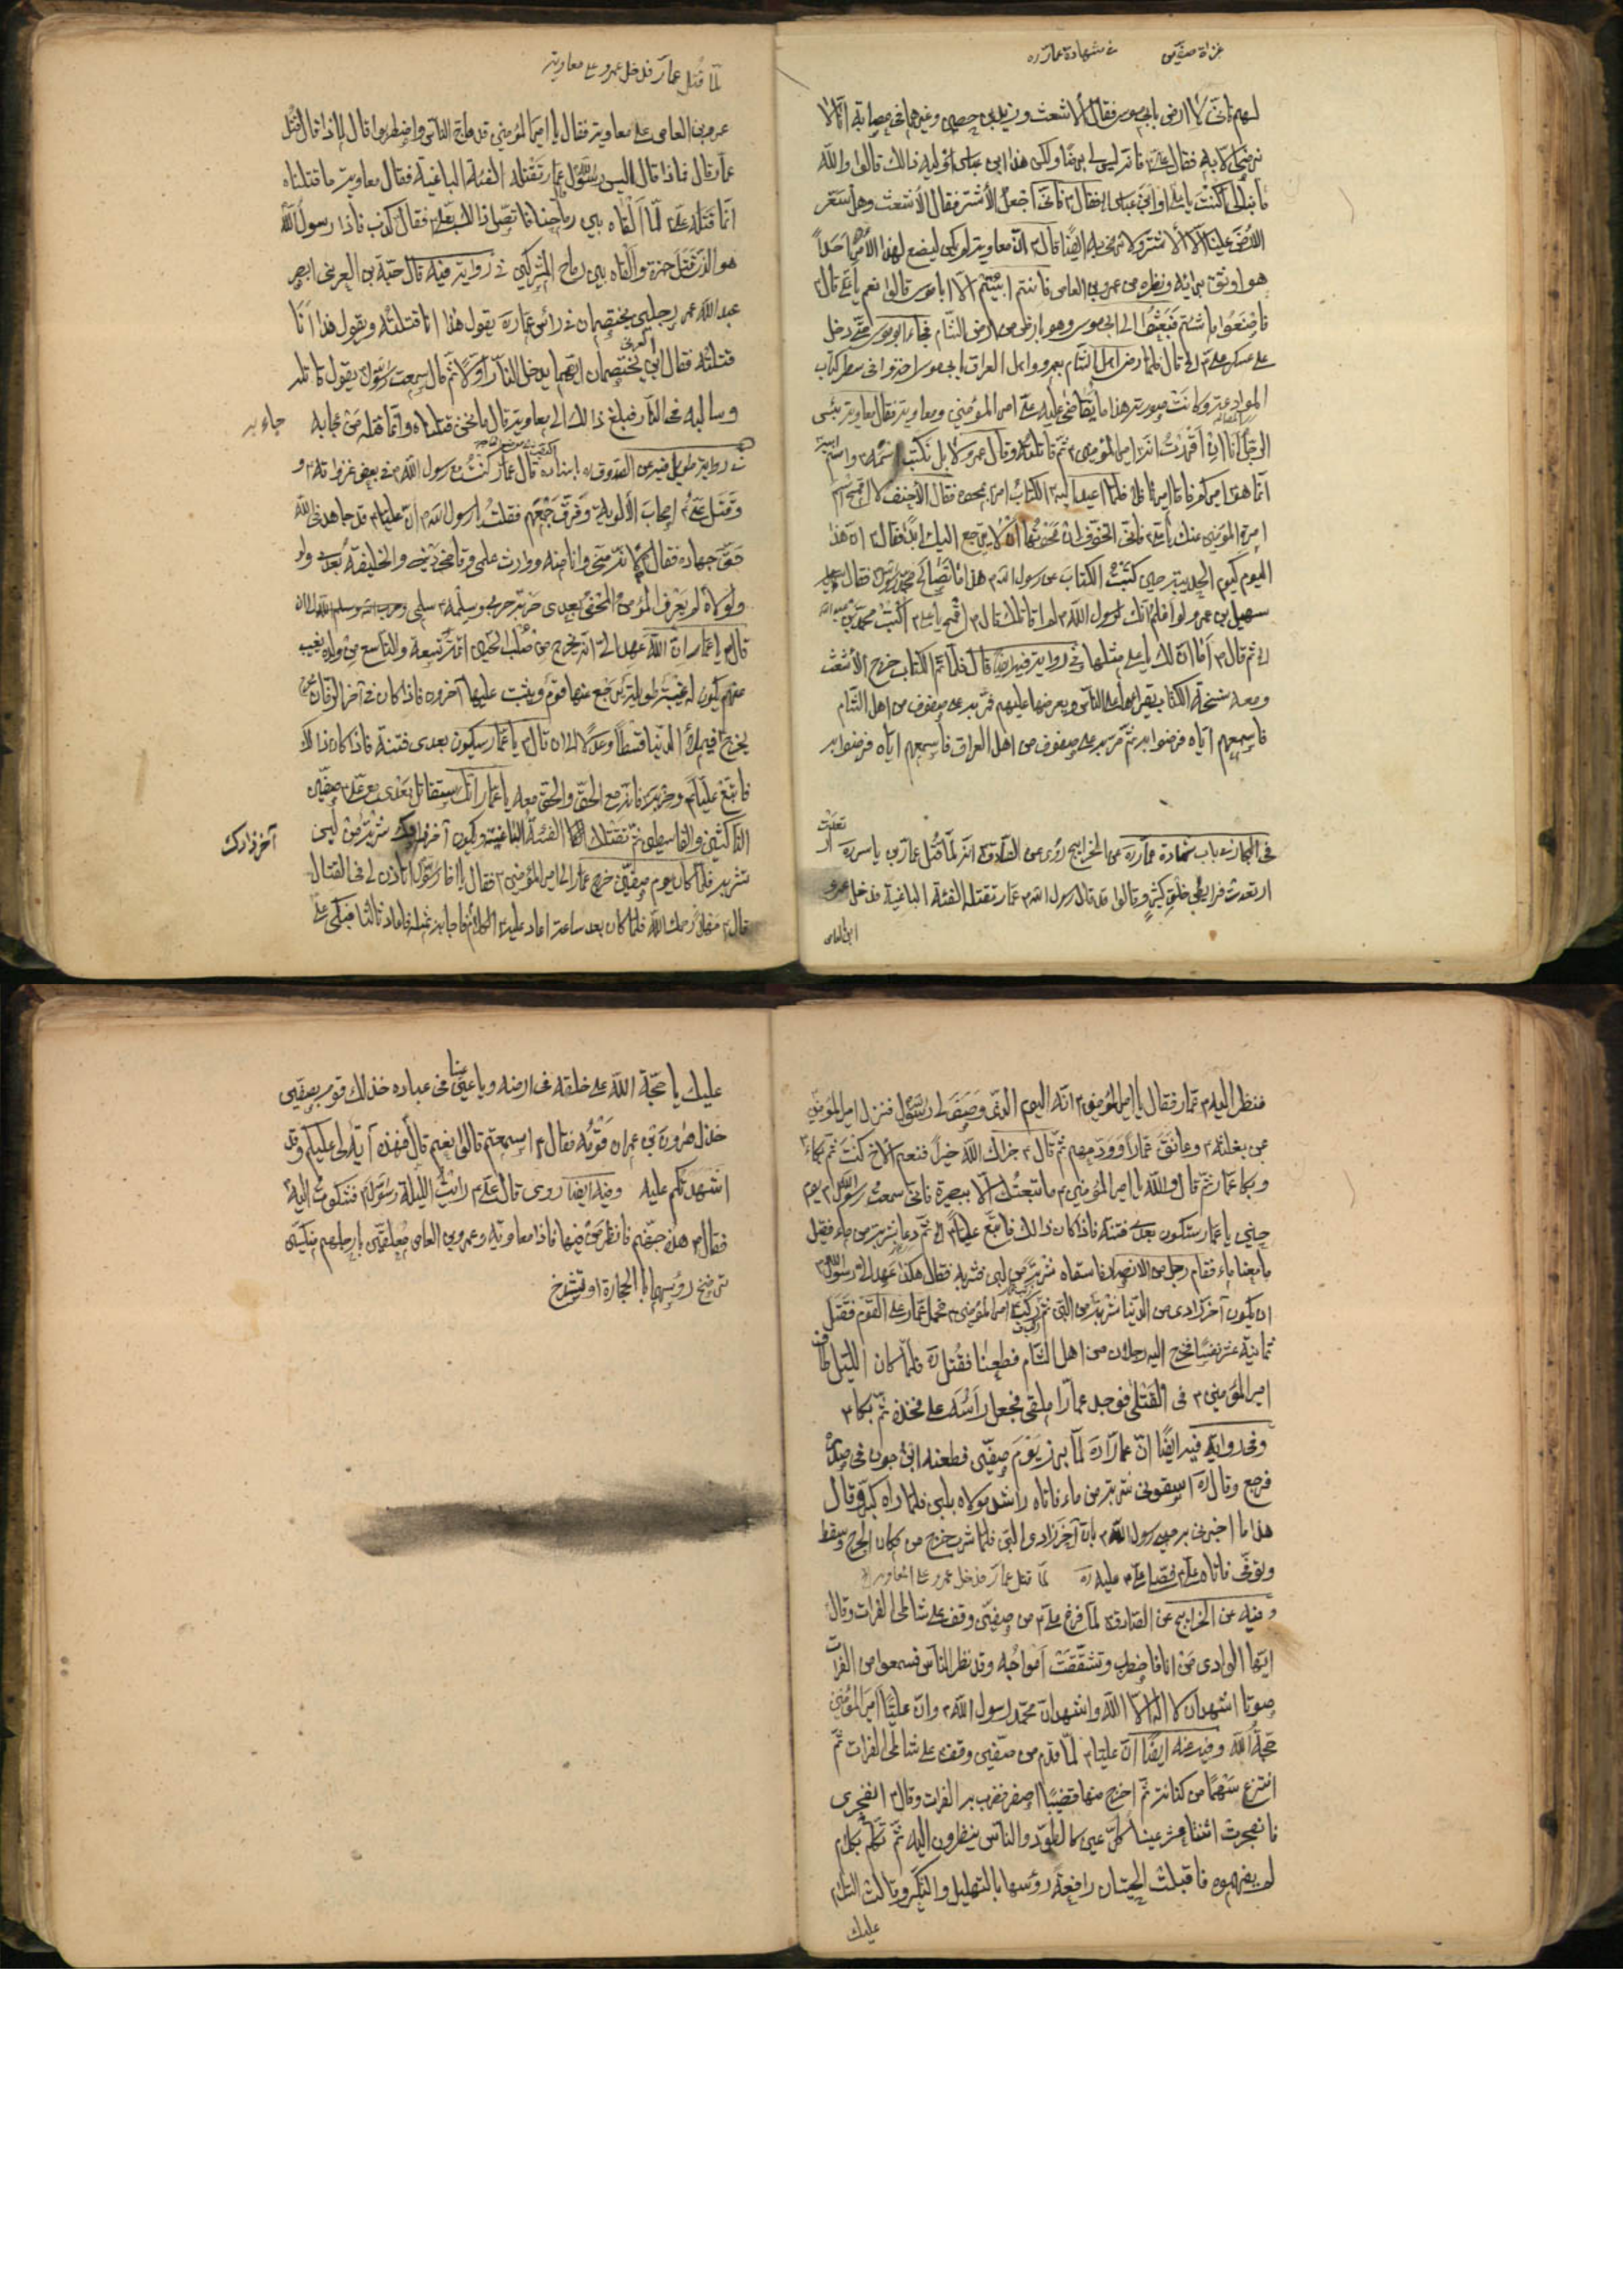 غزاة صفين في شهادة عمار ره
لهم فانى لا ارضى بابى موسى فقال الاشعث وزيد بن حصين وغيرهما فى عصابة انا لا
نرضى الا به فقال على ع فانه ليس لى برضا ولكن هذا ابن عباس اوليه ذالك قالوا والله
ما نبالى كنت يا على او ابن عباس فقال ع فانى اجعل الأشتر فقال الأشعث وهل سعر
الارض علينا الا الأشتر قال ع ان معاوية لم يكن ليضع لهذا الأمر احداً
هو اوثق برأيه ونظره من عمرو بن العاص فانتم ابيتم الا ابا موسى قالوا نعم يا على قال ع
فاصنعوا ما شئتم فبعثوا الى ابى موسى وهو بارض من ارض الشام فجاء ابو موسى حتى دخل
على عسكر على ع قال فلما رضى اهل الشام بعمرو واهل العراق بابى موسى اخذوا فى سطر كتاب
الموادعة وكانت صورته هذا ما تقاضى عليه على امير المؤمنين ومعاوية فقال معاوية بئس
الرجل انا ان اقررت انه امير المؤمنين ع ثم قاتلته وقال عمرو لا بل نكتب اسمه واسم ابيه
انما هو اميركم فاما اميرنا فلا فلما اعيد اليه الكتاب امر بمحوه فقال الأحنف لا تمح اسم
امرة المؤمنين عنك يا على فانى اتخوف ان محوتها ان لا ترجع اليك ابداً فقال ع ان هذا
اليوم كيوم الحديبية حين كتبت الكتاب عن رسول الله ص هذا ما تصالح محمد رسول الله فقال
سهيل بن عمرو لو اعلم انك رسول الله ص لم اقاتلك قال ص امح يا على اكتب محمد بن عبد الله
ثم قال ص أما ان لك يا على مثلها وفى رواية فيه ايضا قال فلما تم الكتاب خرج الأشعث
ومعه نسخة الكتاب يقرأها على الناس ويعرضها عليهم فمر به على صفوف من اهل الشام
فاسمعهم اياه فرضوا به ثم مر به على صفوف من اهل العراق فاسمعهم اياه فرضوا به
فى البحار فى باب شهادة عمار ره عن الخرايج روى عن الصادق ع انه لما قتل عمار بن ياسر ره
ارتعدت فرائص خلق كثير وقالوا قد قال رسول الله ص عمار تقتله الفئة الباغية فدخل عمرو
ابن العاص
لما قتل عمار فدخل عمرو على معاوية
عمرو بن العاص على معاوية فقال يا امير المؤمنين قد هاج الناس واضطربوا قال لماذا قال قتل
عمار قال فماذا قال اليس رسول الله قال عمار تقتله الفئة الباغية فقال معاوية ما قتلناه
انما قتله على لما القاه بين رماحنا فاتصل ذالك بعلى ع فقال كذب فاذا رسول الله
هو الذى قتل حمزة والقاه بين رماح المشركين فى رواية فيه قال حبة بن العرنى ابصر
عبد الله بن عمر رجلين يختصمان فى رأس عمار ره يقول هذا انا قتلته ويقول هذا انا
قتلته فقال ابن عمر يختصمان ايهما يدخل النار اولا ثم قال سمعت رسول الله يقول قاتله
وسالبه فى النار فبلغ ذالك الى معاوية قال ما نحن قتلناه وانما قتله من جاء به
جاء به
فى رواية طويل فيه عن الصدوق ره باسناده قال عمار كنت مع رسول الله ص فى بعض غزواته و
وقتل على ع اصحاب الألوية وفرق جمعهم فقلت يا رسول الله ص ان عليا ع قد جاهد فى الله
حق جهاده فقال ص لانه منى وانا منه ووارث علمى وقاضى دينى والخليفة بعدى ولو
ولولاه لم يعرف المؤمن المحض بعدى حربه حربى وسلمه سلمى
قال يا عمار ان الله عهد الى انه يخرج من صلب الحسين ائمة تسعة والتاسع من ولده يغيب
عنهم يكون له غيبة طويلة يرجع عنها قوم ويثبت عليها آخرون فاذا كان فى آخر الزمان
يخرج فيملأ الدنيا قسطاً وعدلا الى ان قال ص يا عمار سيكون بعدى فتنة فاذا كان ذالك
فاتبع عليا ع وحزبه فانه مع الحق والحق معه يا عمار انك ستقاتل بعدى مع على صفين
الناكثين والقاسطين ثم تقتلك الفئة الباغية ويكون آخر زادك شربة من لبن
آخر زادك
تشربه فلما كان يوم صفين خرج عمار الى امير المؤمنين ع فقال يا اخا رسول الله اتأذن لى فى القتال
قال ع مهلا رحمك الله فلما كان بعد ساعة اعاد عليه الكلام فاجابه بمثله فاعاد ثالثا فبكى على
فنظر اليه ع عمار فقال يا امير المؤمنين ع انه اليوم الذى وصف لى رسول الله فنزل امير المؤمنين
عن بغلته ع وعانق عماراً وودعهم ثم قال ع جزاك الله خيراً فنعم الأخ كنت ثم بكاء
وبكا عمار ثم قال والله يا امير المؤمنين ع ما تبعتك الا ببصيرة فانى سمعت رسول الله ص يوم
حنين يا عمار ستكون بعدى فتنة فاذا كان ذالك فاتبع عليا ع ثم دعا بشربة من ماء فقيل
ما معنا ماء فقام رجل من الانصار فاسقاه شربة من لبن فشربه فقال هكذا عهد الى رسول الله
ان يكون آخر زادى من الدنيا شربة من اللبن ثم ركب امير المؤمنين ع فحمل عمار على القوم فقتل
ثمانية عشر نفساً فخرج اليه رجلان من اهل الشام فطعنا فقتل ره فلما كان الليل طاف
امير المؤمنين ع فى القتلى فوجد عمارا ملقى فجعل رأسه على فخذه ثم بكا ع
وفى رواية فيه ايضاً ان عمارا ره لما برز يوم صفين فطعنه ابن جون فى صدره
فرجع وقال ره اسقونى شربة من ماء فاتاه راشد مولاه بلبن فلما راه كبر وقال
هذا ما اخبرنى به رسول الله ص بان آخر زادى اللبن فلما شرب خرج من مكان الجرح وسقط
وتوفى فاتاه على ع فصلى على ع عليه ره لما قتل عمار فدخل عمرو على معاوية
وفيه عن الخرايج عن الصادق ع لما فرغ على ع من صفين وقف على شاطى الفرات وقال
ايتها الوادى من انا فاضطرب وتشققت امواجه وقد نظر الناس فسمعوا من الفرات
صوتا اشهد ان لا اله الا الله واشهد ان محمد رسول الله ص وان عليا امير المؤمنين
حجة الله وفيه عنه ايضا ان عليا ع لما قدم من صفين وقف على شاطى الفرات ثم
انتزع سهما من كنانته ثم اخرج منها قضيبا اصفر فضرب به الفرات وقال ع انفجرى
فانفجرت اثنتا عشر عينا كل عين كالطود والناس ينظرون اليه ثم تكلم بكلام
لم يفهموه فاقبلت الحيتان رافعة رؤسها بالتهليل والتكبر وقالت السلام
عليك
عليك يا حجة الله على خلقه فى ارضه ويا عين الله فى عباده خذلك قومك بصفين
خذل هرون بن عمران قومه فقال ع اسمعتم قالوا نعم قال فهذه آية لى عليكم وقد
اشهدتكم عليه وفيه ايضا روى قال على ع رايت الليلة رسول الله ص فشكوت اليه
فقال ص هذه جهنم فانظر من فيها فاذا معاوية وعمرو بن العاص معلقين بارجلهم منكسين
ترضخ رؤسهما بالحجارة او تشدخ